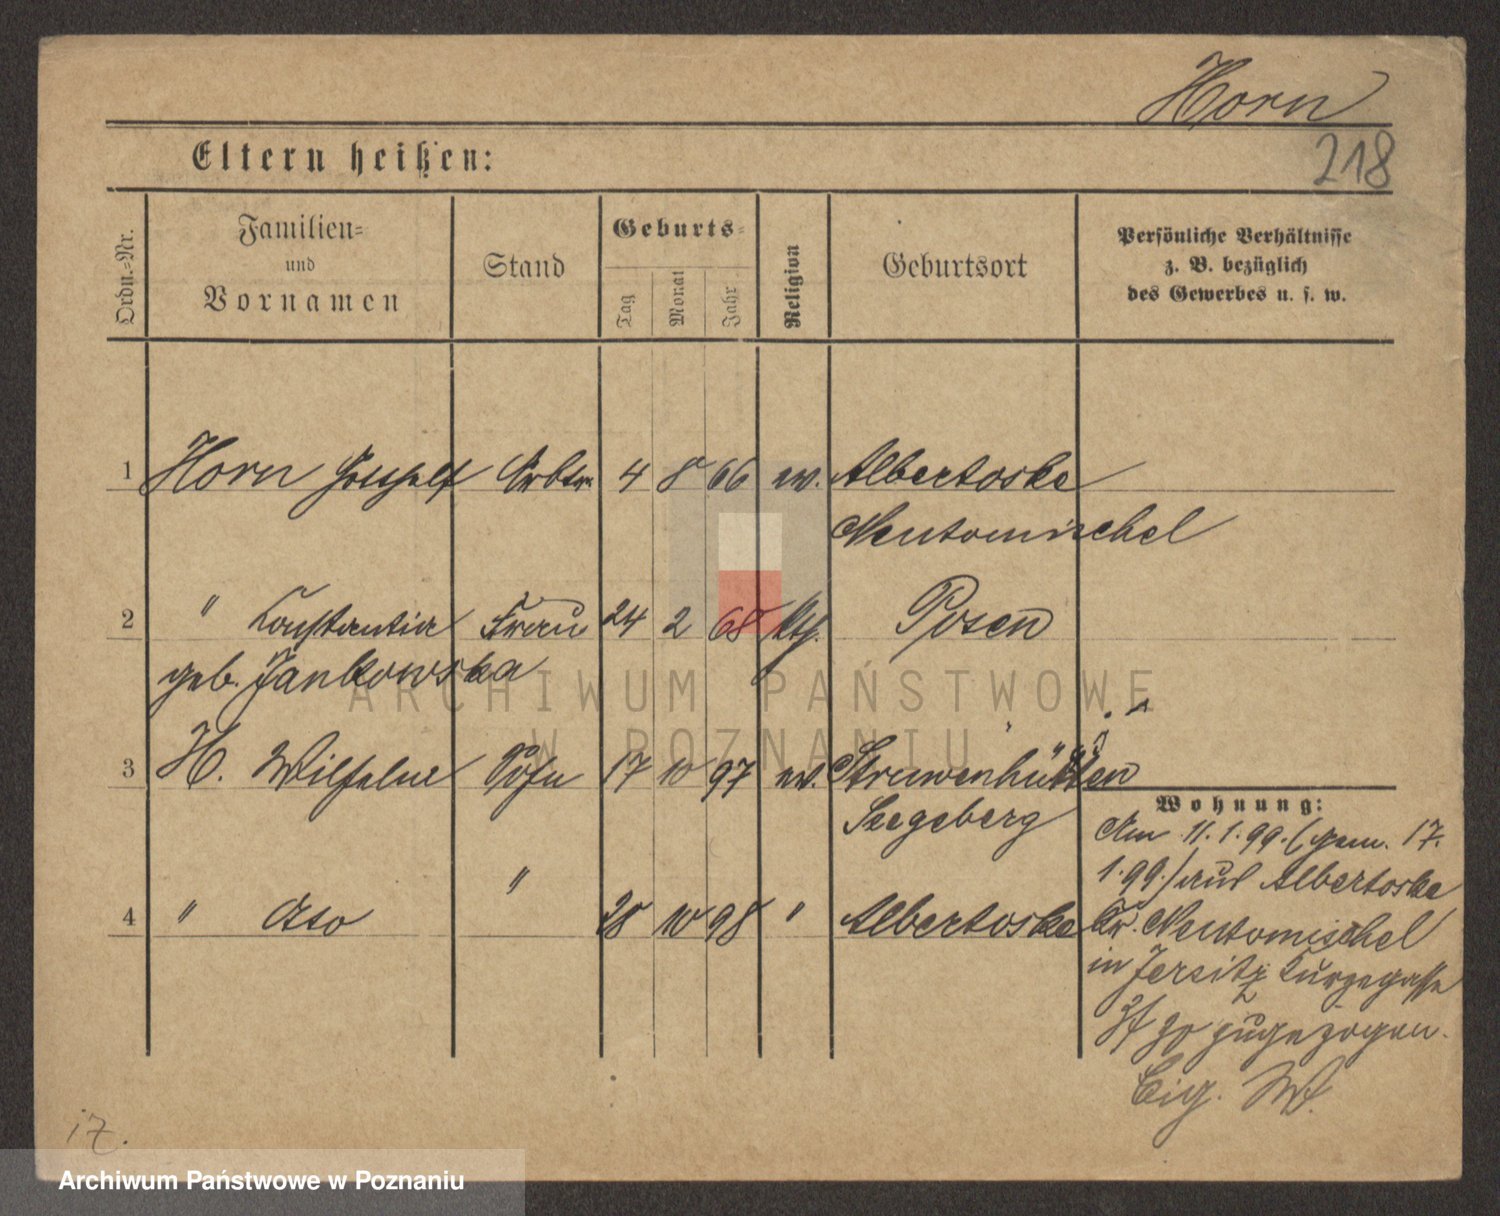 Horn
218
Eltern heißen:
Ordn.=Nr.
Familien=
und
Vornamen
Stand
Geburts=
Tag
Monat
Jahr
Religion
Geburtsort
Persönliche Verhältnisse
z. B. bezüglich
des Gewerbes u. s. w.
1 Horn Gotthelf Arbtr. 4 8 66 ev. Albertoske
Neutomischel
2 " Constantia Frau 24 2 68 kth. Posen
geb. Jankowska
ARCHIWUM PAŃSTWOWE
W POZNANIU
3 H. Wilhelm Sohn 17 10 97 ev. Struwenhütten
Segeberg
Wohnung:
Am 11.1.99. (gem. 17.
1.99.) aus Albertoske
4 " Otto " 28 10 98 " Albertoske
Kr. Neutomischel
in Jersitz Kurzegasse
zugezogen.
Eig. W.
iz.
Archiwum Państwowe w Poznaniu